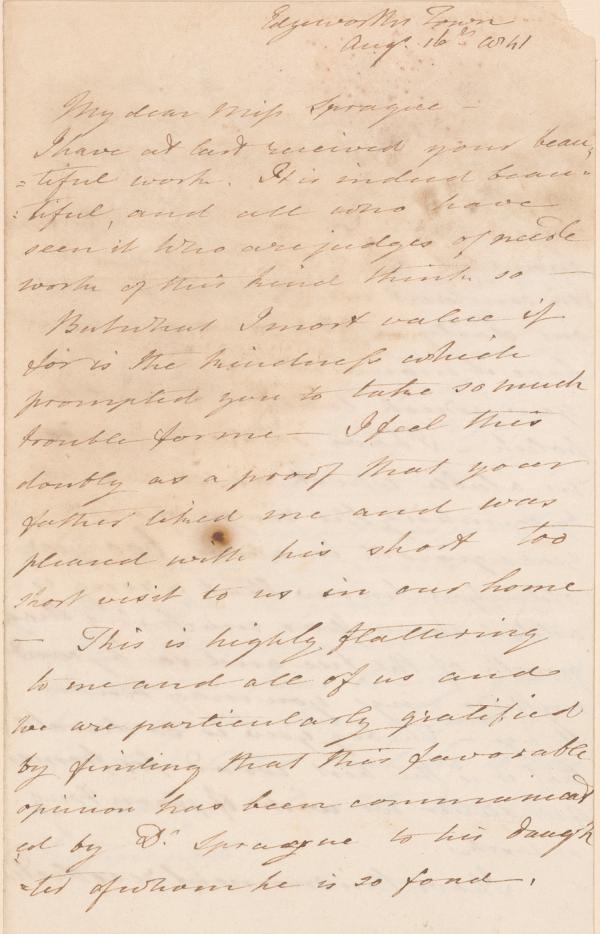 Edgeworths Town
Augt. 16th 1841
My dear Miss Sprague -
I have at last received your beau-
=tiful work. It is indeed beau-
=tiful, and all who have
seen it who are judges of needle
work of this kind think so -
But what I most value it
for is the kindness which
prompted you to take so much
trouble for me - I feel this
doubly as a proof that your
father liked me and was
pleased with his short too
short visit to us in our home
- This is highly flattering
to me and all of us and
we are particularly gratified
by finding that this favorable
opinion has been communicat
ed by Dr. Sprague to his daugh
=ter of whom he is so fond.